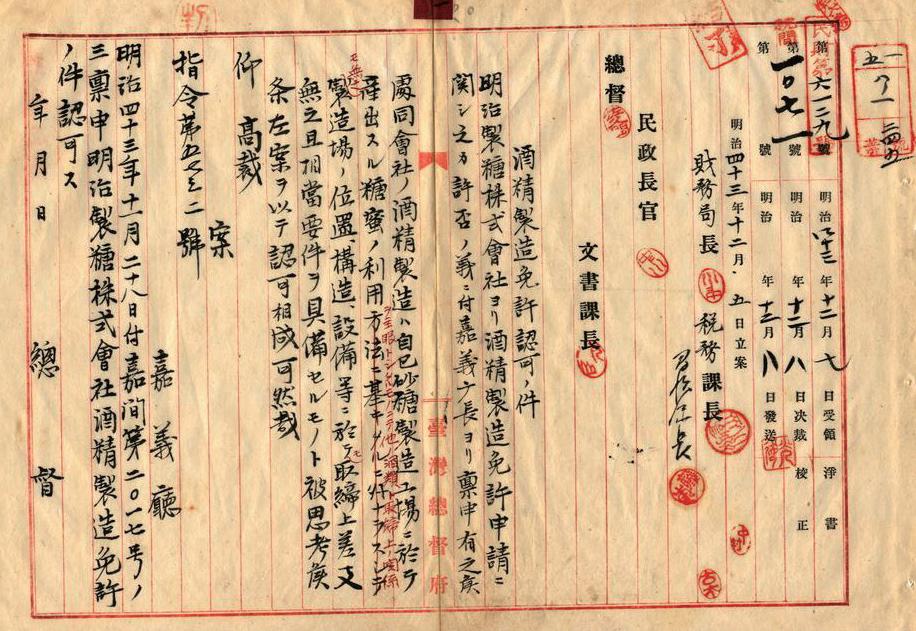 五一
一、
三四五
號
民財第六一三九號
第一〇七一號
第 號
明治四十三年十二月七日受領
明治 年十二月八日決裁
明治 年十二月八日發送
淨書
校正
明治四十三年十二月五日立案
財務局長 稅務課長
民政長官
總督 文書課長
酒精製造免許認可ノ件
明治製糖株式會社ヨリ酒精製造免許申請ニ
關シ之カ許否ノ義ニ付嘉義廳長ヨリ稟申有之候
處同會社ノ酒精製造ハ自己砂糖製造工場ニ於テ
產出スル糖蜜ノ利用方法ニ基キタルニ外ナラスシテ
製造場ノ位置、構造、設備等ニ於テモ取締上差支
無之且相當要件ヲ具備セルモノト被思考候
条左案ヲ以テ認可相成可然哉
仰 高裁
案
指令第五七三二號
嘉義廳
明治四十三年十一月二十八日付嘉間第二〇一七号ノ
三稟申明治製糖株式會社酒精製造免許
ノ件認可ス
年 月 日 總督
臺灣總督府